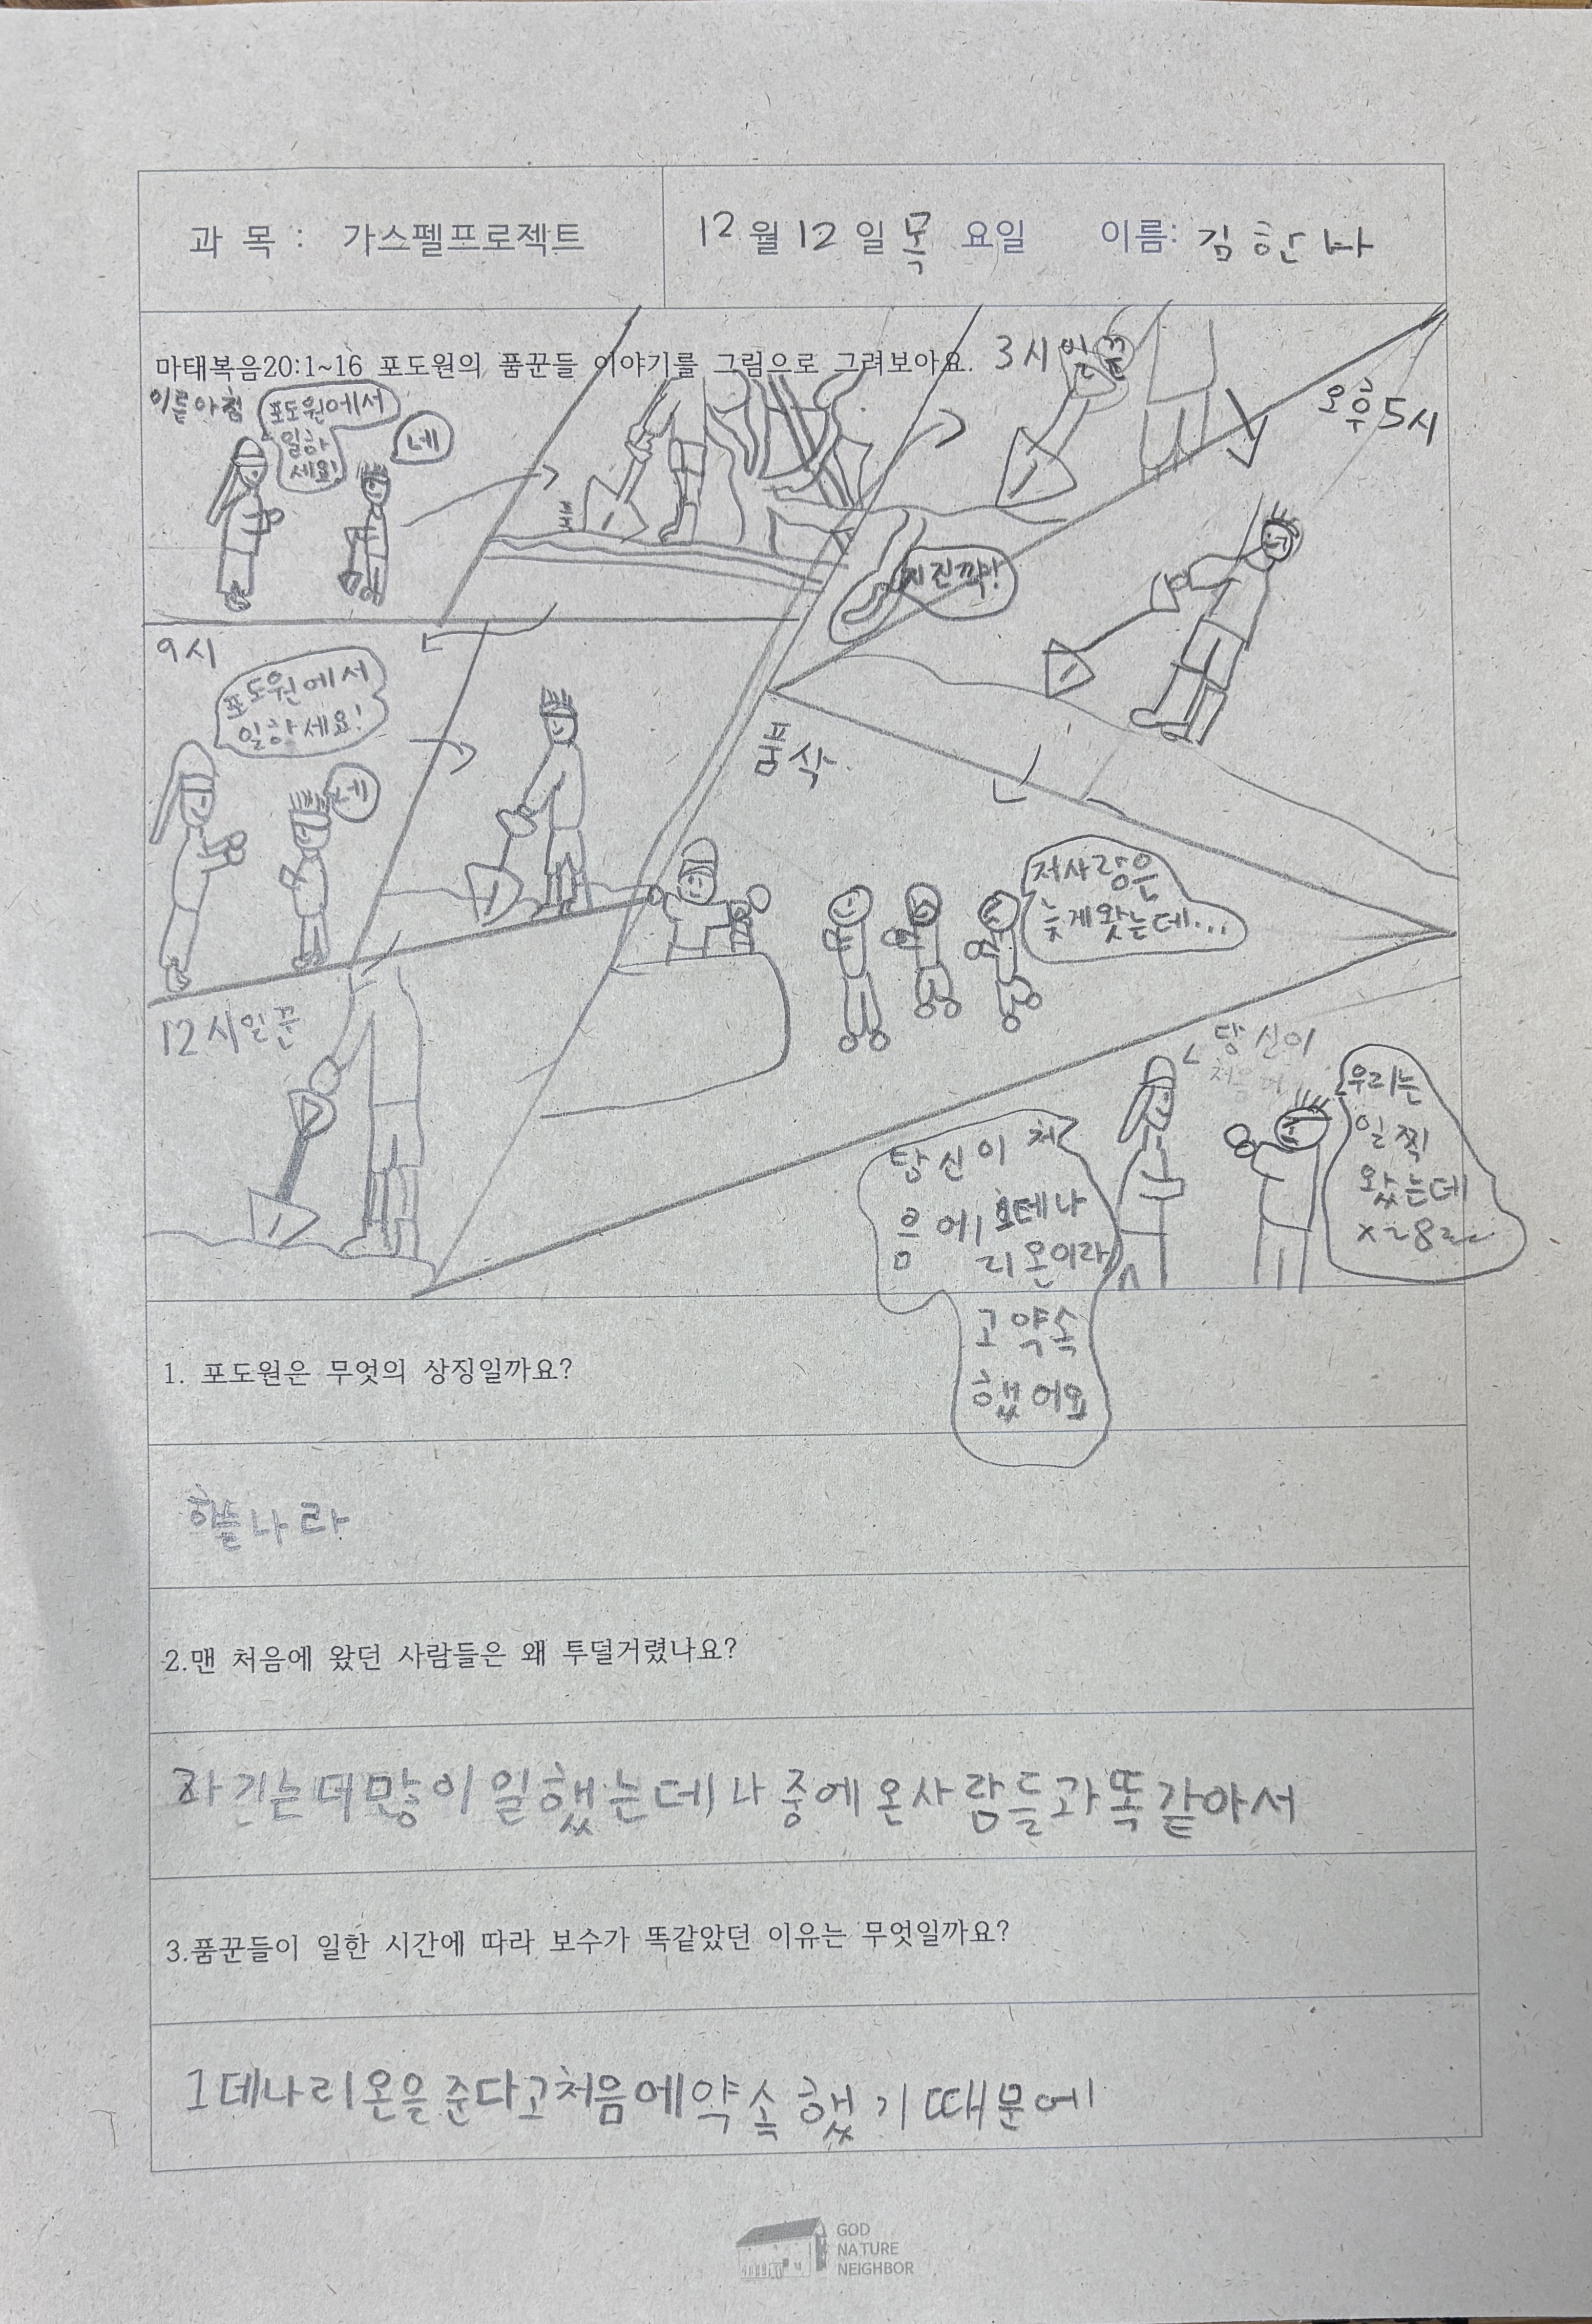 과 목 : 가스펠프로젝트
12월 12일 목 요일 이름: 김한나
마태복음20:1~16 포도원의 품꾼들 이야기를 그림으로 그려보아요.
이른아침
포도원에서
일하
세요!
네
3시일꾼
오후5시
9시
포도원에서
일하세요!
네
12시일꾼
품삯
저사람은
늦게왔는데...
당신이
처음에
우리는
일찍
왔는데
당신이 처
음에 1데나
리온이라
고 약속
했어요
1. 포도원은 무엇의 상징일까요?
하늘나라
2.맨 처음에 왔던 사람들은 왜 투덜거렸나요?
자기는더많이일했는데나중에온사람들과똑같아서
3.품꾼들이 일한 시간에 따라 보수가 똑같았던 이유는 무엇일까요?
1데나리온을준다고처음에약속했기때문에
GOD
NATURE
NEIGHBOR